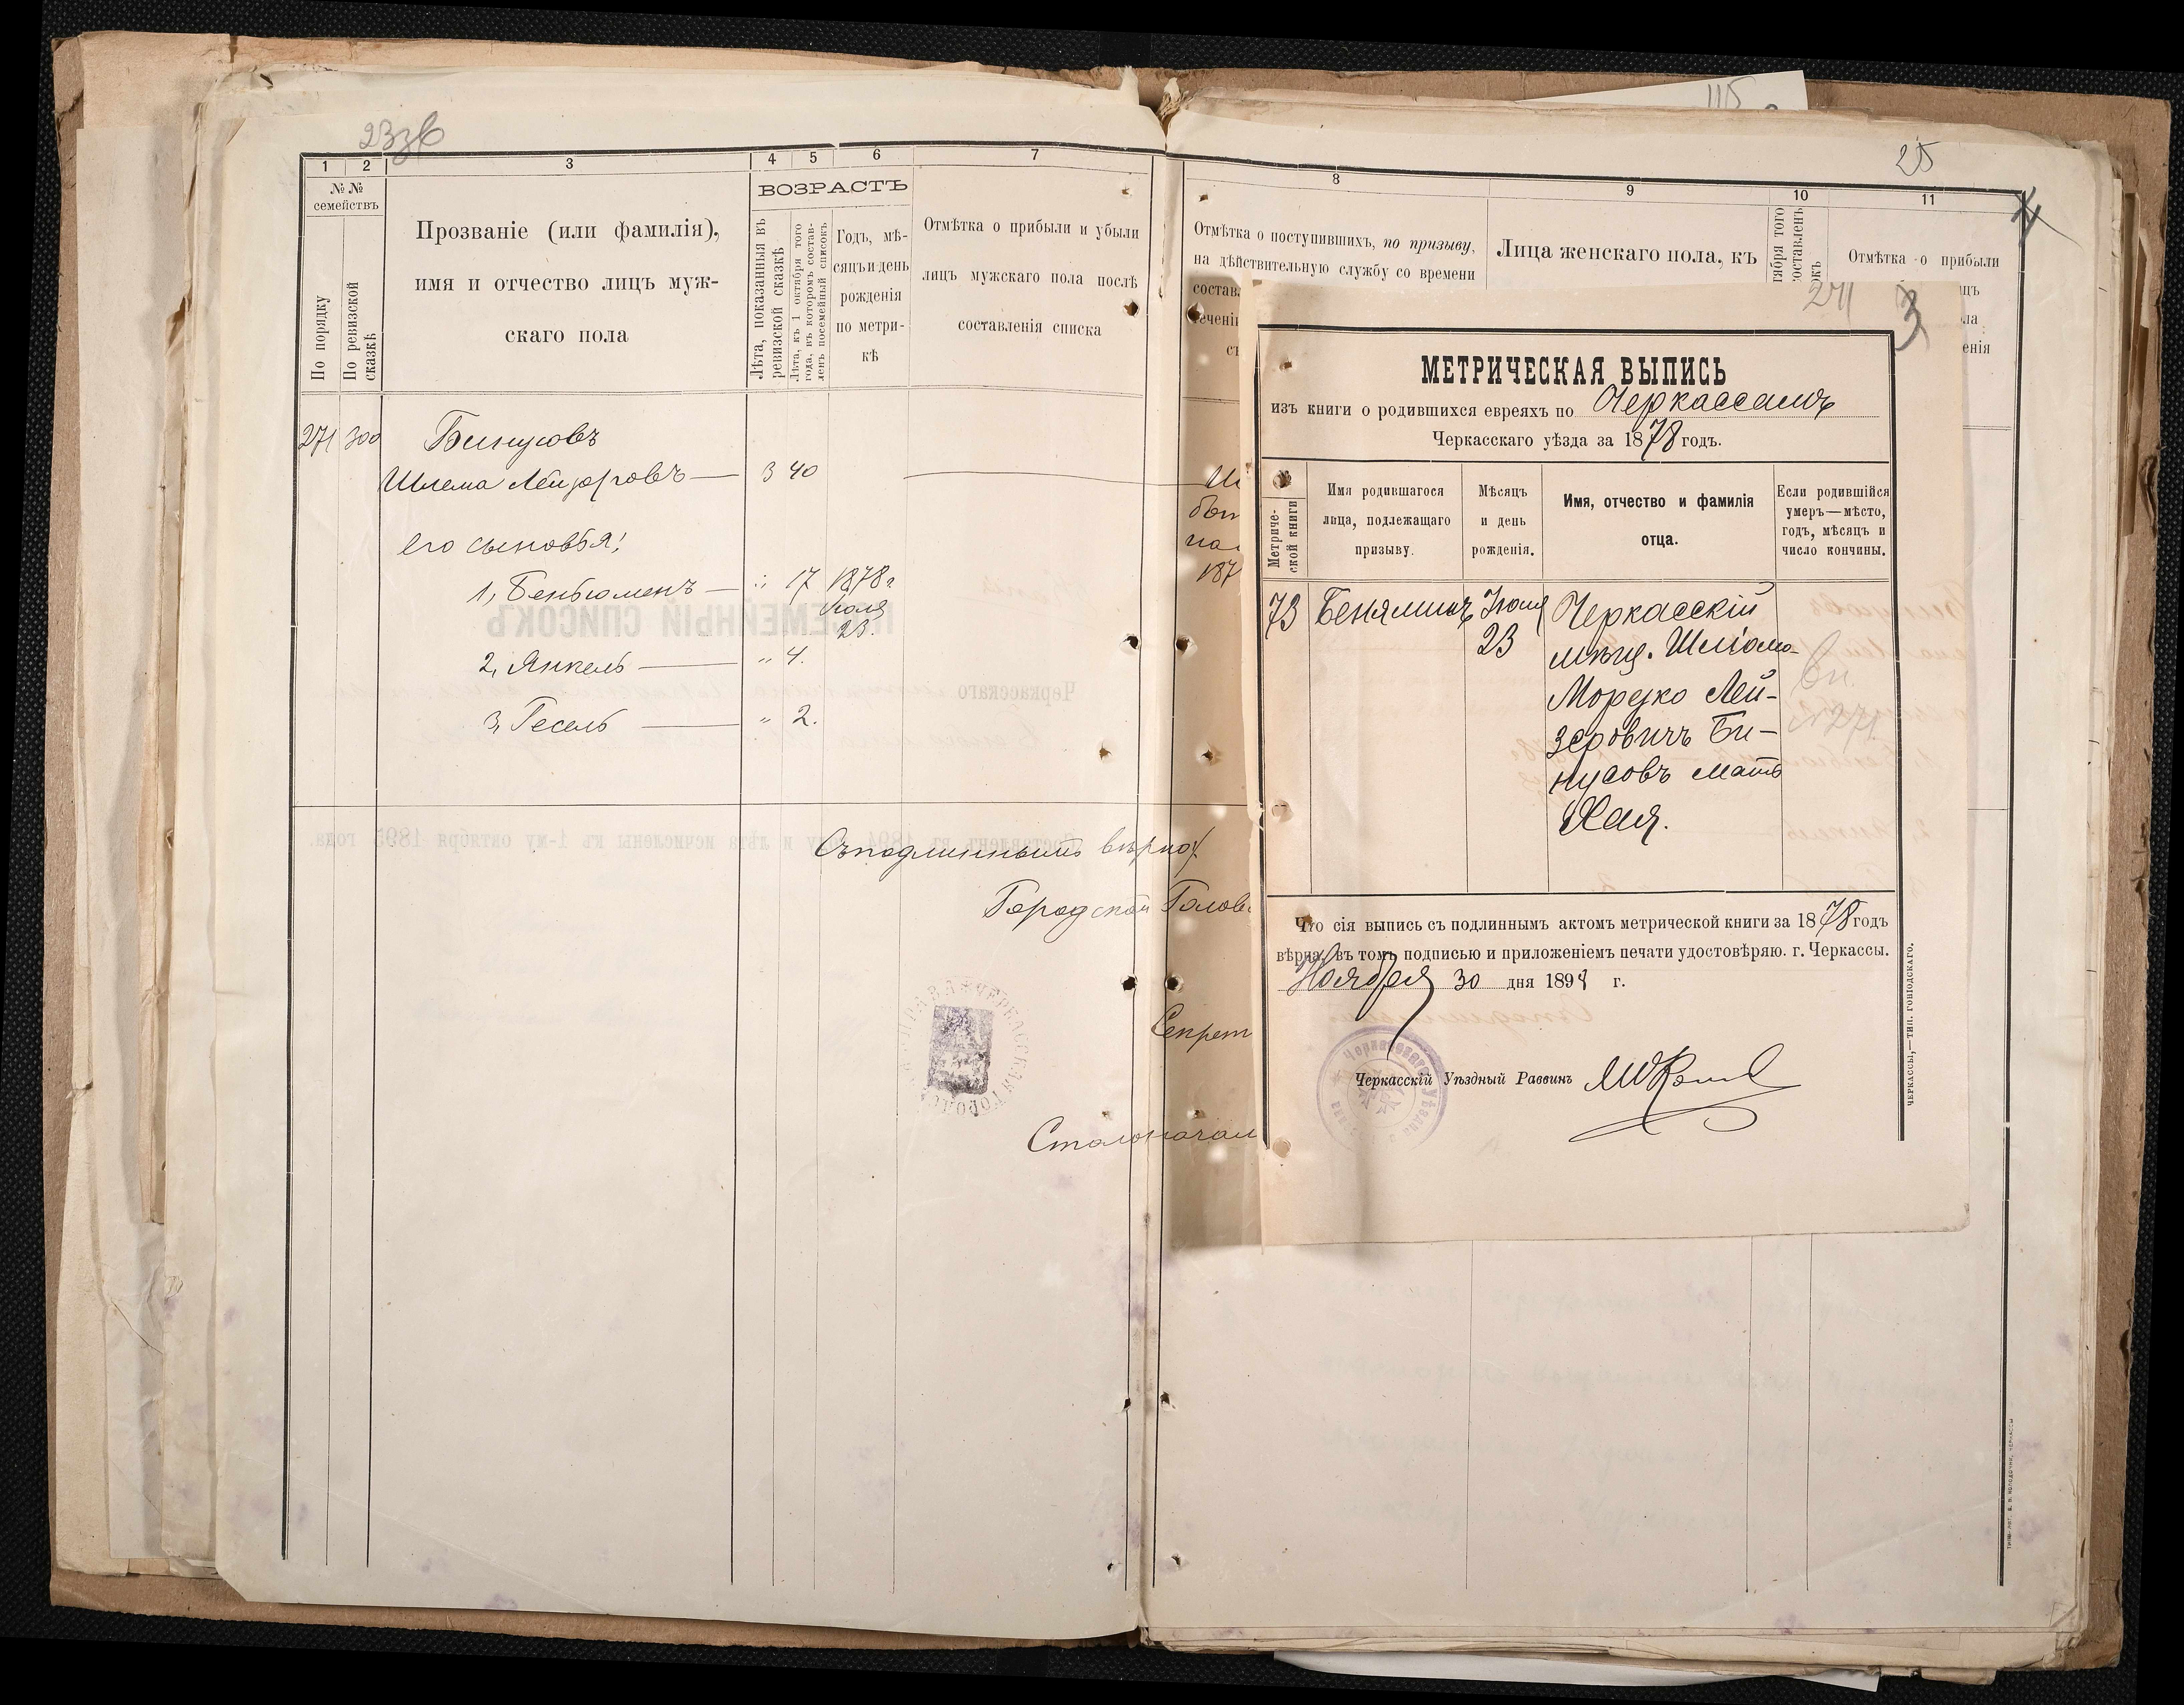 23зв
1 2 3 4 5 6 7
№№ семействъ
По порядку
По ревизской сказкѣ
Прозваніе (или фамилія),
имя и отчество лицъ муж-
скаго пола
ВОЗРАСТЪ
Лѣта, показанныя въ ревизской сказкѣ
Лѣта, къ 1 октября того года, въ которомъ состав-ленъ посемейный списокъ
Годъ, мѣ-
сяцъ и день
рожденія
по метри-
кѣ
Отмѣтка о прибыли и убыли
лицъ мужскаго пола послѣ
составленія списка
271 300 Бинусовъ
Шлема Лейзоровъ — 3 40
его сыновья:
1, Беньюменъ — " 17 1878 г
Іюля
23.
2, Янкель — " 4.
3, Гесель — " 2.
Съ подлиннымъ вѣрно:
Городской Голов
Секрет
Столоначал
115
25
8 9 10 11
Отмѣтка о поступившихъ, по призыву,
на дѣйствительную службу со времени
состав
ечені
Лица женскаго пола, къ
тября того
оставленъ
окъ
Отмѣтка о прибыли
цъ
ла
енія
бы
на
187
24
3
МЕТРИЧЕСКАЯ ВЫПИСЬ
изъ книги о родившихся евреяхъ по Черкассамъ
Черкасскаго уѣзда за 1878 годъ.
Метриче-
ской книги
Имя родившагося
лица, подлежащаго
призыву.
Мѣсяцъ
и день
рожденія.
Имя, отчество и фамилія
отца.
Если родившійся
умеръ—мѣсто,
годъ, мѣсяцъ и
число кончины.
73 Беняминъ Іюля 23
Черкасскій
мѣщ. Шліома-
Мордко Лей-
зеровичъ Би-
нусовъ мать
Хая.
вн.
№271
Что сія выпись съ подлиннымъ актомъ метрической книги за 1878 годъ
вѣрна, въ томъ подписью и приложеніемъ печати удостовѣряю. г. Черкассы.
Ноября 30 дня 1898 г.
Черкасскій Уѣздный Раввинъ
ЧЕРКАССЫ,—ТИП. ГОНІОДСКАГО.